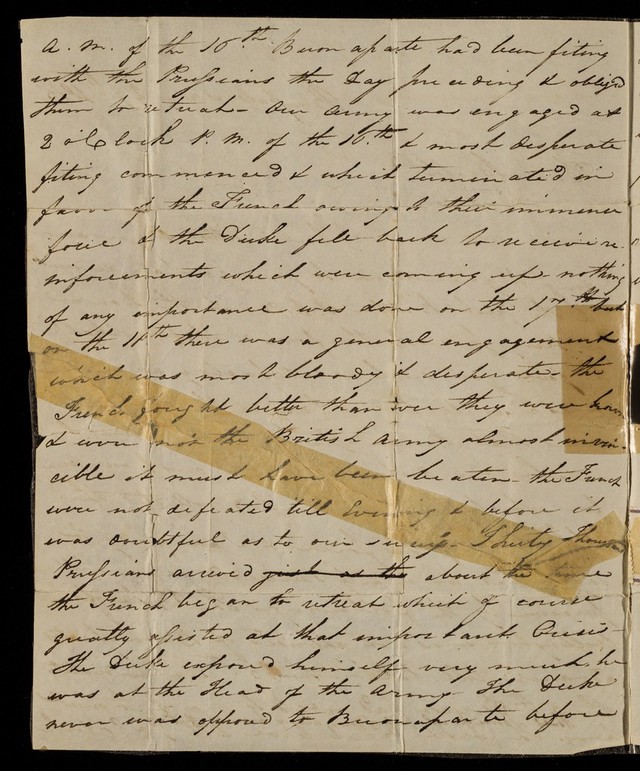 A. M. of the 16th. Buonaparte had been fiting
with the Prussians the Day preceding & obliged
them to retreat - our army was engaged at
2 o'Clock P. M. of the 16th & most desperate
fiting commenced & which terminated in
favor of the French owing to their immence
force & the Duke fell back to receive re-
inforcements which were coming up nothing
of any importance was done on the 17th but
on the 18th there was a general engagement
which was most bloody & desperate - the
French fought better than ever they were known
& were not the British Army almost invin-
cible it must have been beaten - the French
were not defeated till Evening & before it
was doubtful as to our success Thirty Thousand
Prussians arrived just as the about the time
the French began to retreat which of course
greatly assisted at that important Crisis
The Duke exposed himself very much he
was at the Head of the Army The Duke
never was opposed to Buonaparte before